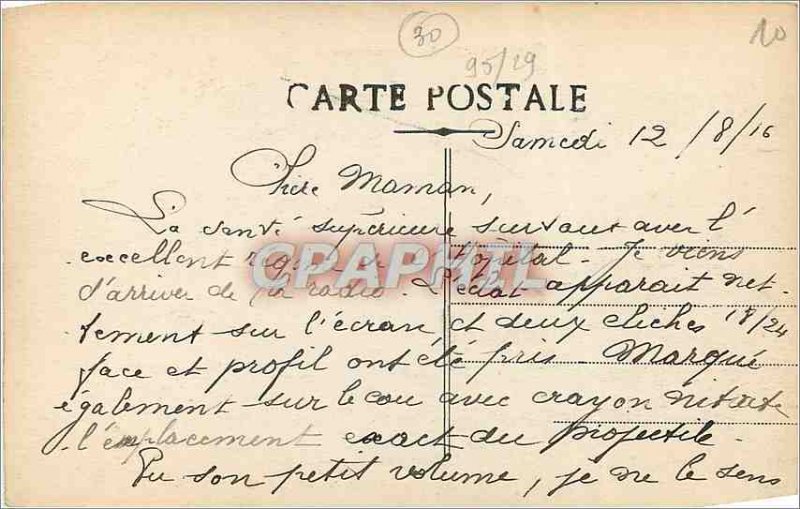 30
10
95/29
CARTE POSTALE
Samedi 12/8/16
Chère Maman,
La santé supérieure surtout avec l'
excellent régime de l'hôpital. Je viens
d'arriver de la radio. L'éclat apparait net-
tement sur l'écran, et deux clichés 18/24
face et profil ont été pris. Marqué
également sur le cou avec crayon nitrate
l'emplacement exact du projectile.
Vu son petit volume, je ne le sens
CPAPHIL